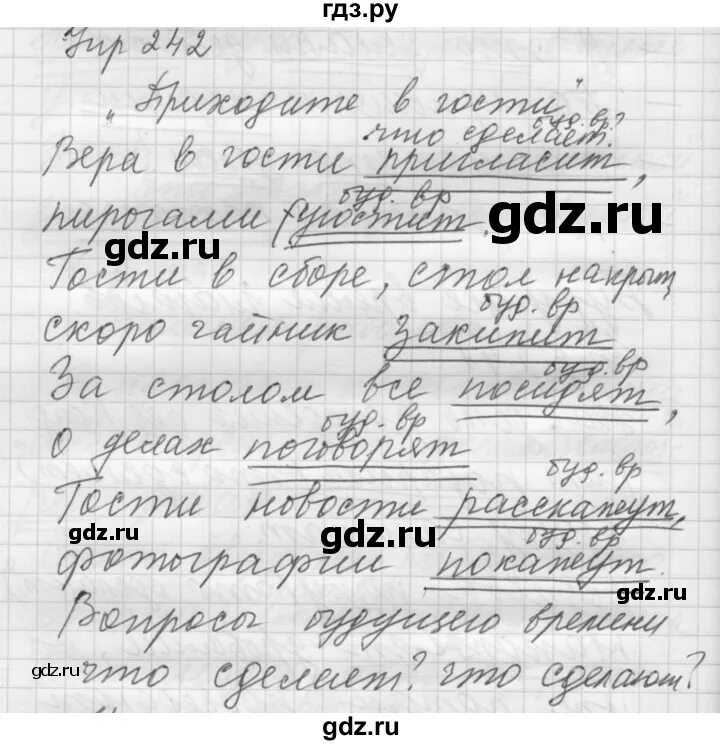 гдз.ру
Упр 242
„Приходите в гости"
что сделает? буд. вр.
Вера в гости пригласит,
буд. вр
пирогами угостит.
gdz.ru gdz.ru
Гости в сборе, стол накрыт,
буд. вр
скоро чайник закипит
gdz.ru gdz.ru
буд. вр
За столом все посидят,
буд. вр
о делах поговорят
буд. вр
Гости новости расскажут,
gdz.ru gdz.ru gdz.ru
буд. вр
фотографии покажут.
gdz.ru
Вопросы будущего времени
gdz.ru
что сделает? что сделают?
gdz.ru
gdz.ru